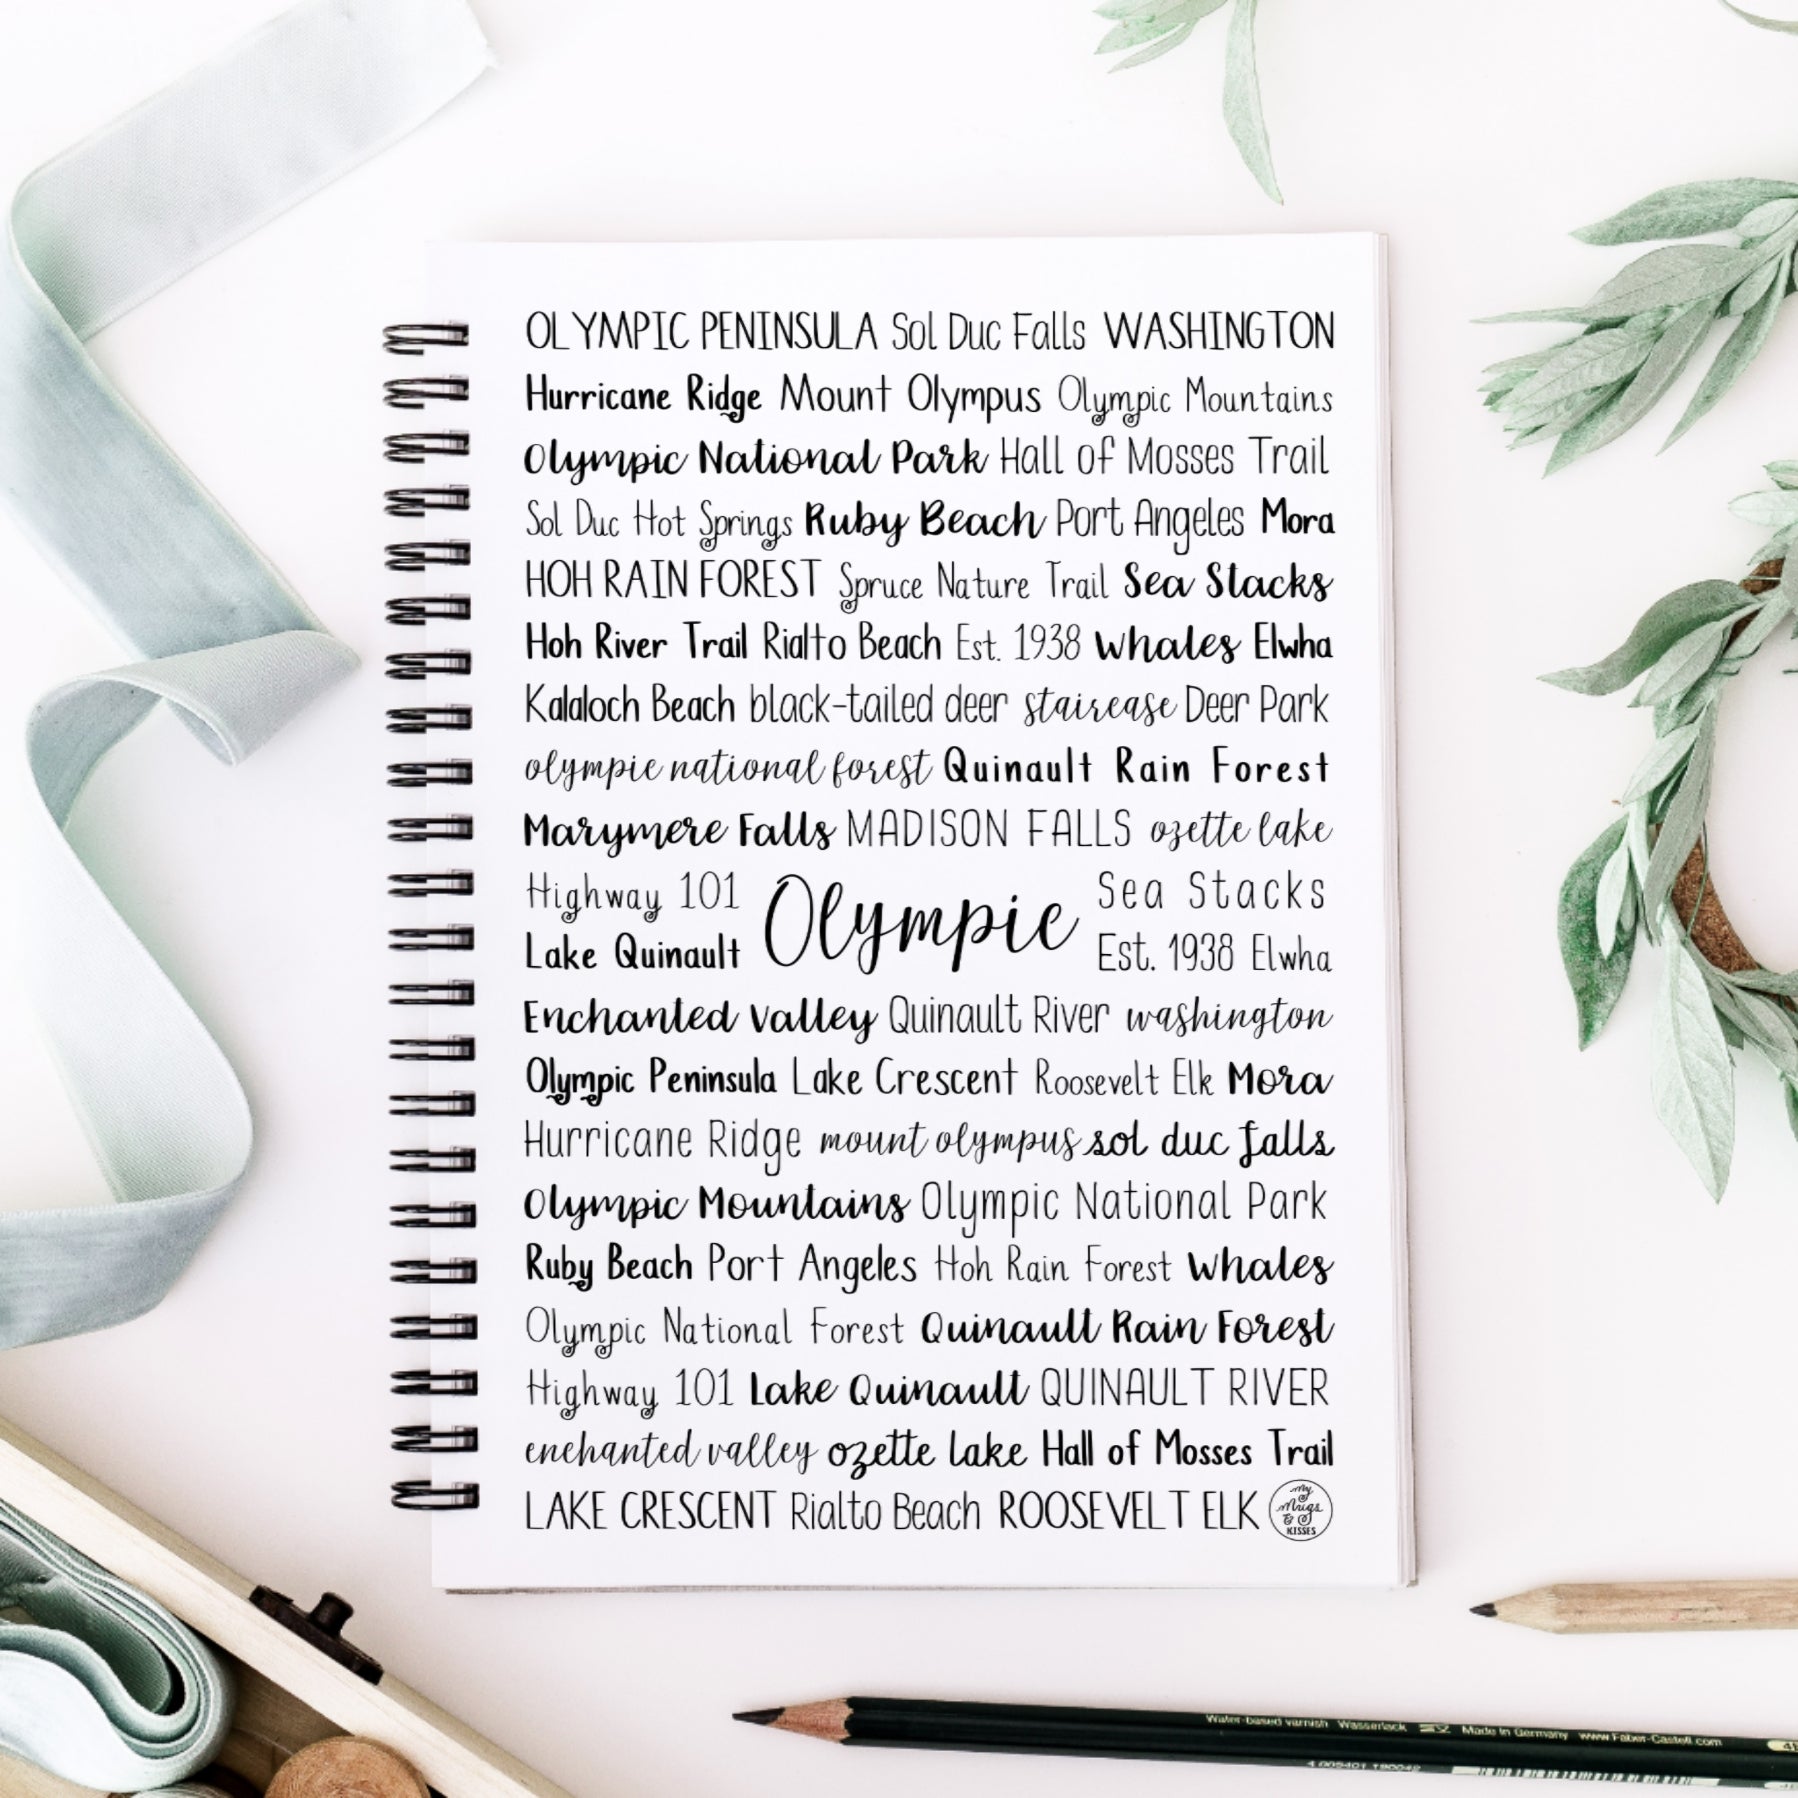 OLYMPIC PENINSULA Sol Duc Falls WASHINGTON
Hurricane Ridge Mount Olympus Olympic Mountains
Olympic National Park Hall of Mosses Trail
Sol Duc Hot Springs Ruby Beach Port Angeles Mora
HOH RAIN FOREST Spruce Nature Trail Sea Stacks
Hoh River Trail Rialto Beach Est. 1938 Whales Elwha
Kalaloch Beach black-tailed deer staircase Deer Park
olympic national forest Quinault Rain Forest
Marymere Falls MADISON FALLS ozette lake
Highway 101
Lake Quinault
Olympic
Sea Stacks
Est. 1938 Elwha
Enchanted Valley Quinault River washington
Olympic Peninsula Lake Crescent Roosevelt Elk Mora
Hurricane Ridge mount olympus sol duc falls
Olympic Mountains Olympic National Park
Ruby Beach Port Angeles Hoh Rain Forest Whales
Olympic National Forest Quinault Rain Forest
Highway 101 Lake Quinault QUINAULT RIVER
enchanted valley ozette lake Hall of Mosses Trail
LAKE CRESCENT Rialto Beach ROOSEVELT ELK
My
Mugs
&
KISSES
Water-based varnish Wasserlack Made in Germany www.Faber-Castell.com
4 005401 190042